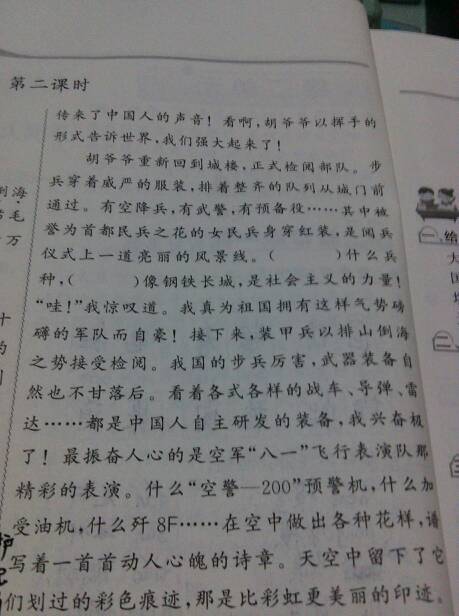 第二课时
传来了中国人的声音！看啊，胡爷爷以挥手的
形式告诉世界，我们强大起来了！
胡爷爷重新回到城楼，正式检阅部队。步
兵穿着威严的服装，排着整齐的队列从城门前
通过。有空降兵，有武警，有预备役……其中被
誉为首都民兵之花的女民兵身穿红装，是阅兵
仪式上一道亮丽的风景线。（　　　）什么兵
种，（　　　）像钢铁长城，是社会主义的力量！
“哇！”我惊叹道。我真为祖国拥有这样气势磅
礴的军队而自豪！接下来，装甲兵以排山倒海
之势接受检阅。我国的步兵厉害，武器装备自
然也不甘落后。看着各式各样的战车、导弹、雷
达……都是中国人自主研发的装备，我兴奋极
了！最振奋人心的是空军“八一”飞行表演队那
精彩的表演。什么“空警—200”预警机，什么加
受油机，什么歼8F……在空中做出各种花样，谱
写着一首首动人心魄的诗章。天空中留下了它
们划过的彩色痕迹，那是比彩虹更美丽的印迹。
倒海
毛
万
十
的
一、给
二、